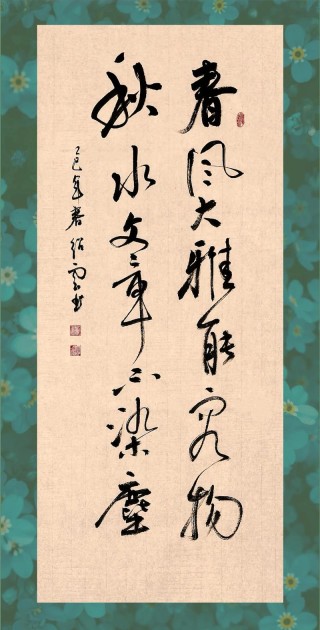 春风大雅能容物
秋水文章不染塵
乙巳年春绍